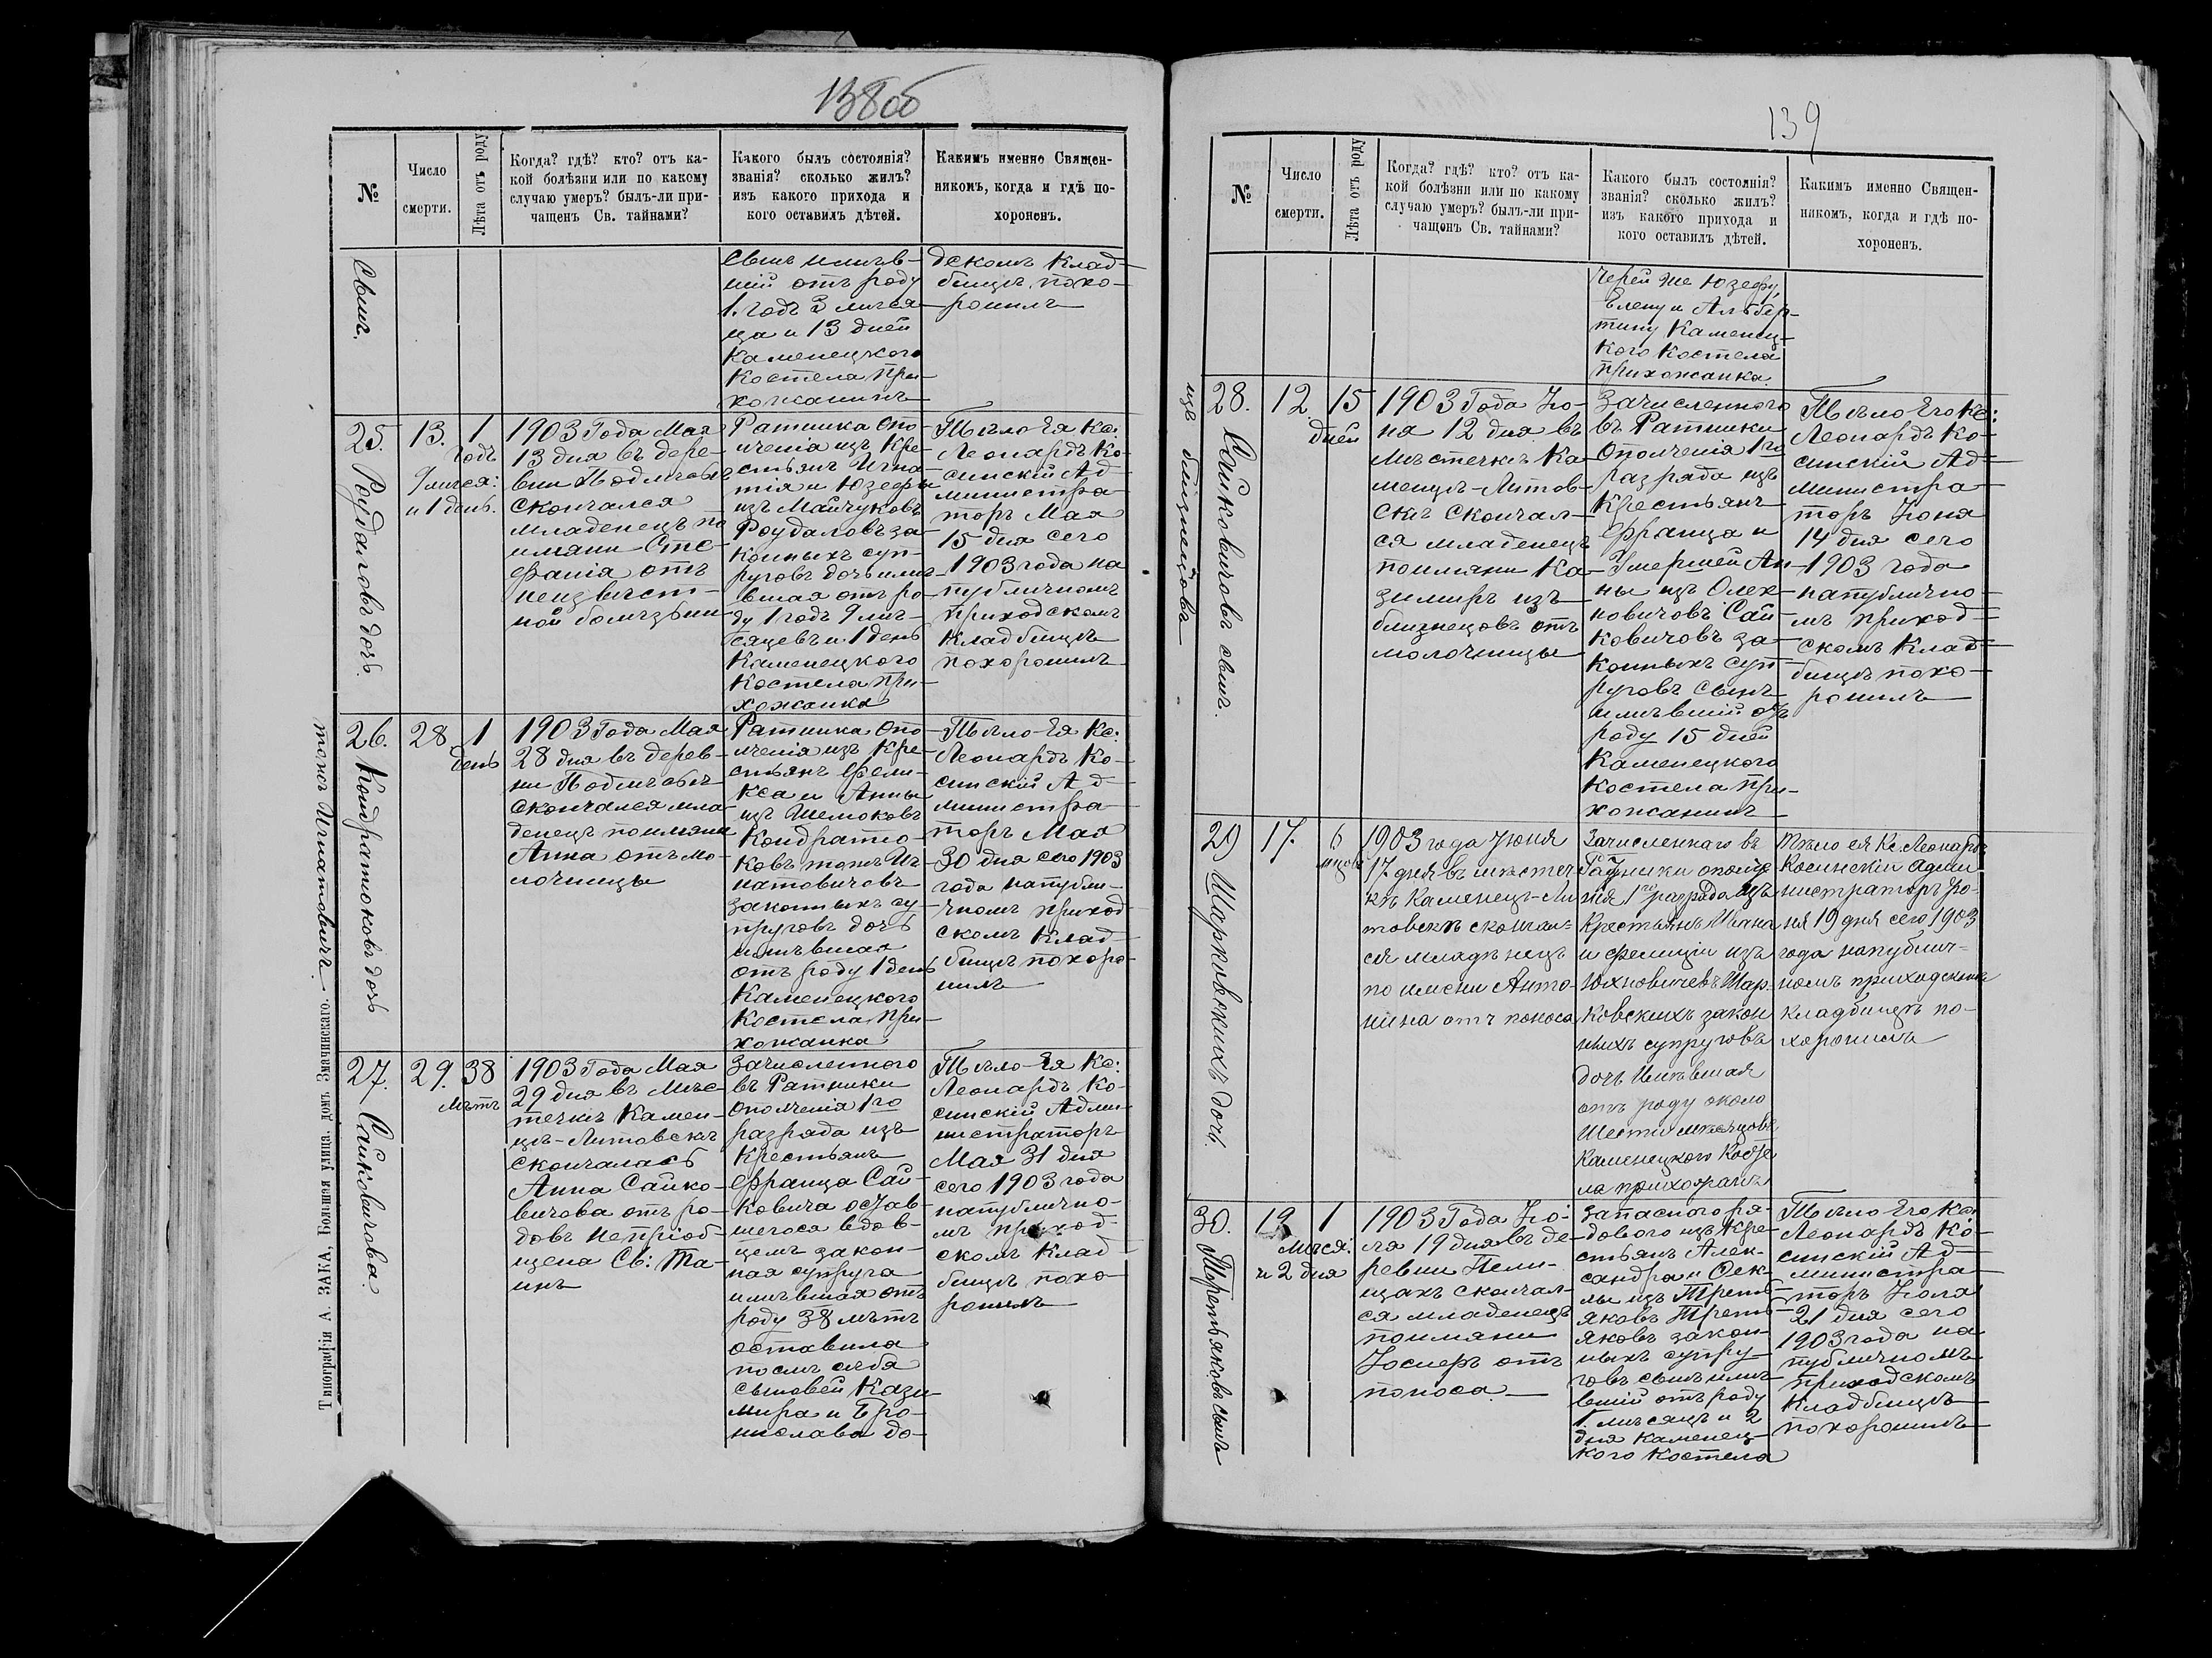 138 об
№
Число
смерти.
Лѣта отъ роду
Когда? гдѣ? кто? отъ ка-
кой болѣзни или по какому
случаю умеръ? былъ-ли при-
чащенъ Св. тайнами?
Какого былъ состоянія?
званія? сколько жилъ?
изъ какого прихода и
кого оставилъ дѣтей.
Какимъ именно Священ-
никомъ, когда и гдѣ по-
хороненъ.
сынъ.
сынъ имѣв-
шій отъ роду
1. годъ 3 мѣся-
ца и 13 дней
Каменецкого
Костела при-
хожанинъ
дскомъ клад-
бищѣ похо-
ронилъ
25.
Роудаловъ дочь.
13.
1
годъ
9 мѣся:
и 1 день.
1903 Года Мая
13 дня въ дере-
вни
скончался
младенецъ по
имяни Сте-
фанія отъ
неизвѣст-
ной болѣзни
Ратника опо-
лченія изъ Кре-
стьянъ Игна-
тія и Юзефы
изъ Майчуковъ
Роудаловъ за-
конныхъ суп-
руговъ дочь имѣ-
вшая отъ ро-
ду 1 годъ 9 мѣ-
сяцевъ и 1 день
Каменецкого
Костела при-
хожанка
Тѣло Ея Кс:
Леонардъ Ко-
синскій Ад-
министра-
торъ Мая
15 дня сего
1903 года на
публичномъ
приходскомъ
кладбищѣ
похоронилъ
26.
Кондратюковъ дочь
тожъ Игнатовичъ
28
1
день
1903 Года Мая
28 дня въ дерев-
ни
скончался мла-
денецъ по имяни
Анна отъ мо-
лочницы
Ратника опо-
лченія изъ Кре-
стьянъ Фели-
кса и Анны
изъ Шемюковъ
Кондратю-
ковъ тожъ Иг-
натовичовъ
законныхъ су-
пруговъ дочь
имѣвшая
отъ роду 1 день
Каменецкого
Костела при-
хожанка
Тѣло Ея Кс:
Леонардъ Ко-
синскій Ад-
министра-
торъ Мая
30 дня сего 1903
года на публи-
чномъ приход-
скомъ клад-
бищѣ похоро-
нилъ
27.
Сайковичова.
29.
38
лѣтъ
1903 Года Мая
29 дня въ Мѣс-
течкѣ Камен-
цѣ-Литовскѣ
скончалась
Анна Сайко-
вичова отъ ро-
довъ непріоб-
щена Св: Та-
инъ
Зачисленного
въ Ратники
ополченія 1го
разряда изъ
Крестьянъ
Франца Сай-
ковича остав-
шегося вдов-
цемъ закон-
ная супруга
имѣвшая отъ
роду 38 лѣтъ
оставила
послѣ себя
сыновей Кази-
мира и Бро-
нислава до-
Тѣло Ея Кс:
Леонардъ Ко-
синскій Адми-
нистраторъ
Мая 31 дня
сего 1903 года
на публично-
мъ приход-
скомъ клад-
бищѣ похо-
ронилъ
Типографія А. ЗАКА, Большая улица, домъ Значинскаго.
139
№
Число
смерти.
Лѣта отъ роду
Когда? гдѣ? кто? отъ ка-
кой болѣзни или по какому
случаю умеръ? былъ-ли при-
чащенъ Св. тайнами?
Какого былъ состоянія?
званія? сколько жилъ?
изъ какого прихода и
кого оставилъ дѣтей.
Какимъ именно Священ-
никомъ, когда и гдѣ по-
хороненъ.
черей же Юзефу,
Елену и Альбер-
тину Каменец-
кого Костела
прихожанка.
28.
Сайковичовъ сынъ.
изъ близнецовъ
12.
15
дней
1903 Года Ію-
ня 12 дня въ
Мѣстечкѣ Ка-
менцѣ-Литов-
скѣ скончал-
ся младенецъ
по имяни Ка-
зимиръ изъ
близнецовъ отъ
молочницы
Зачисленного
въ Ратники
Ополченія 1го
разряда изъ
Крестьянъ
Франца и
Умершей Ан-
ны изъ Олех-
новичовъ Сай-
ковичовъ за-
конныхъ суп-
руговъ сынъ
имѣвшій отъ
роду 15 дней
Каменецкого
Костела при-
хожанинъ
Тѣло Его Кс:
Леонардъ Ко-
синскій Ад-
министра-
торъ Іюня
14 дня сего
1903 года
на публично-
мъ приход-
скомъ клад-
бищѣ похо-
ронилъ
29
Шарковскихъ дочь.
17.
6
мѣсяц.
1903 года Іюня
17 дня въ мѣстеч-
кѣ Каменецъ-Ли-
товскѣ скончал-
ся младенецъ
по имени Анто-
нина отъ поноса
Зачисленнаго въ
Ратники ополче-
нія 1го разряда изъ
Крестьянъ Ивана
и Фелиціи изъ
Юхновичевъ Шар-
ковскихъ закон-
ныхъ супруговъ
дочь имѣвшая
отъ роду около
шести мѣсяцовъ
Каменецкого Косте-
ла прихожанка
Тѣло ея Кс. Леонардъ
Косинскій Адми-
нистраторъ Ію-
ня 19 дня сего 1903
года на публич-
номъ приходскомъ
кладбищѣ по-
хоронилъ
30.
Третьяковъ сынъ
19
1
мѣся:
и 2 дня
1903 Года Ію-
ля 19 дня въ де-
ревни Пели-
щахъ скончал-
ся младенецъ
по имяни
Іосифъ отъ
поноса
Запасного ря-
дового изъ Кре-
стьянъ Алек-
сандра и Фек-
лы изъ Треть-
яковъ Треть-
яковъ закон-
ныхъ супру-
говъ сынъ имѣ-
вшій отъ роду
1. мѣсяцъ и 2
дня Каменец-
кого Костела
Тѣло Его Кс:
Леонардъ Ко-
синскій Ад-
министра-
торъ Іюля
21 дня сего
1903 года на
публичномъ
приходскомъ
кладбищѣ
похоронилъ